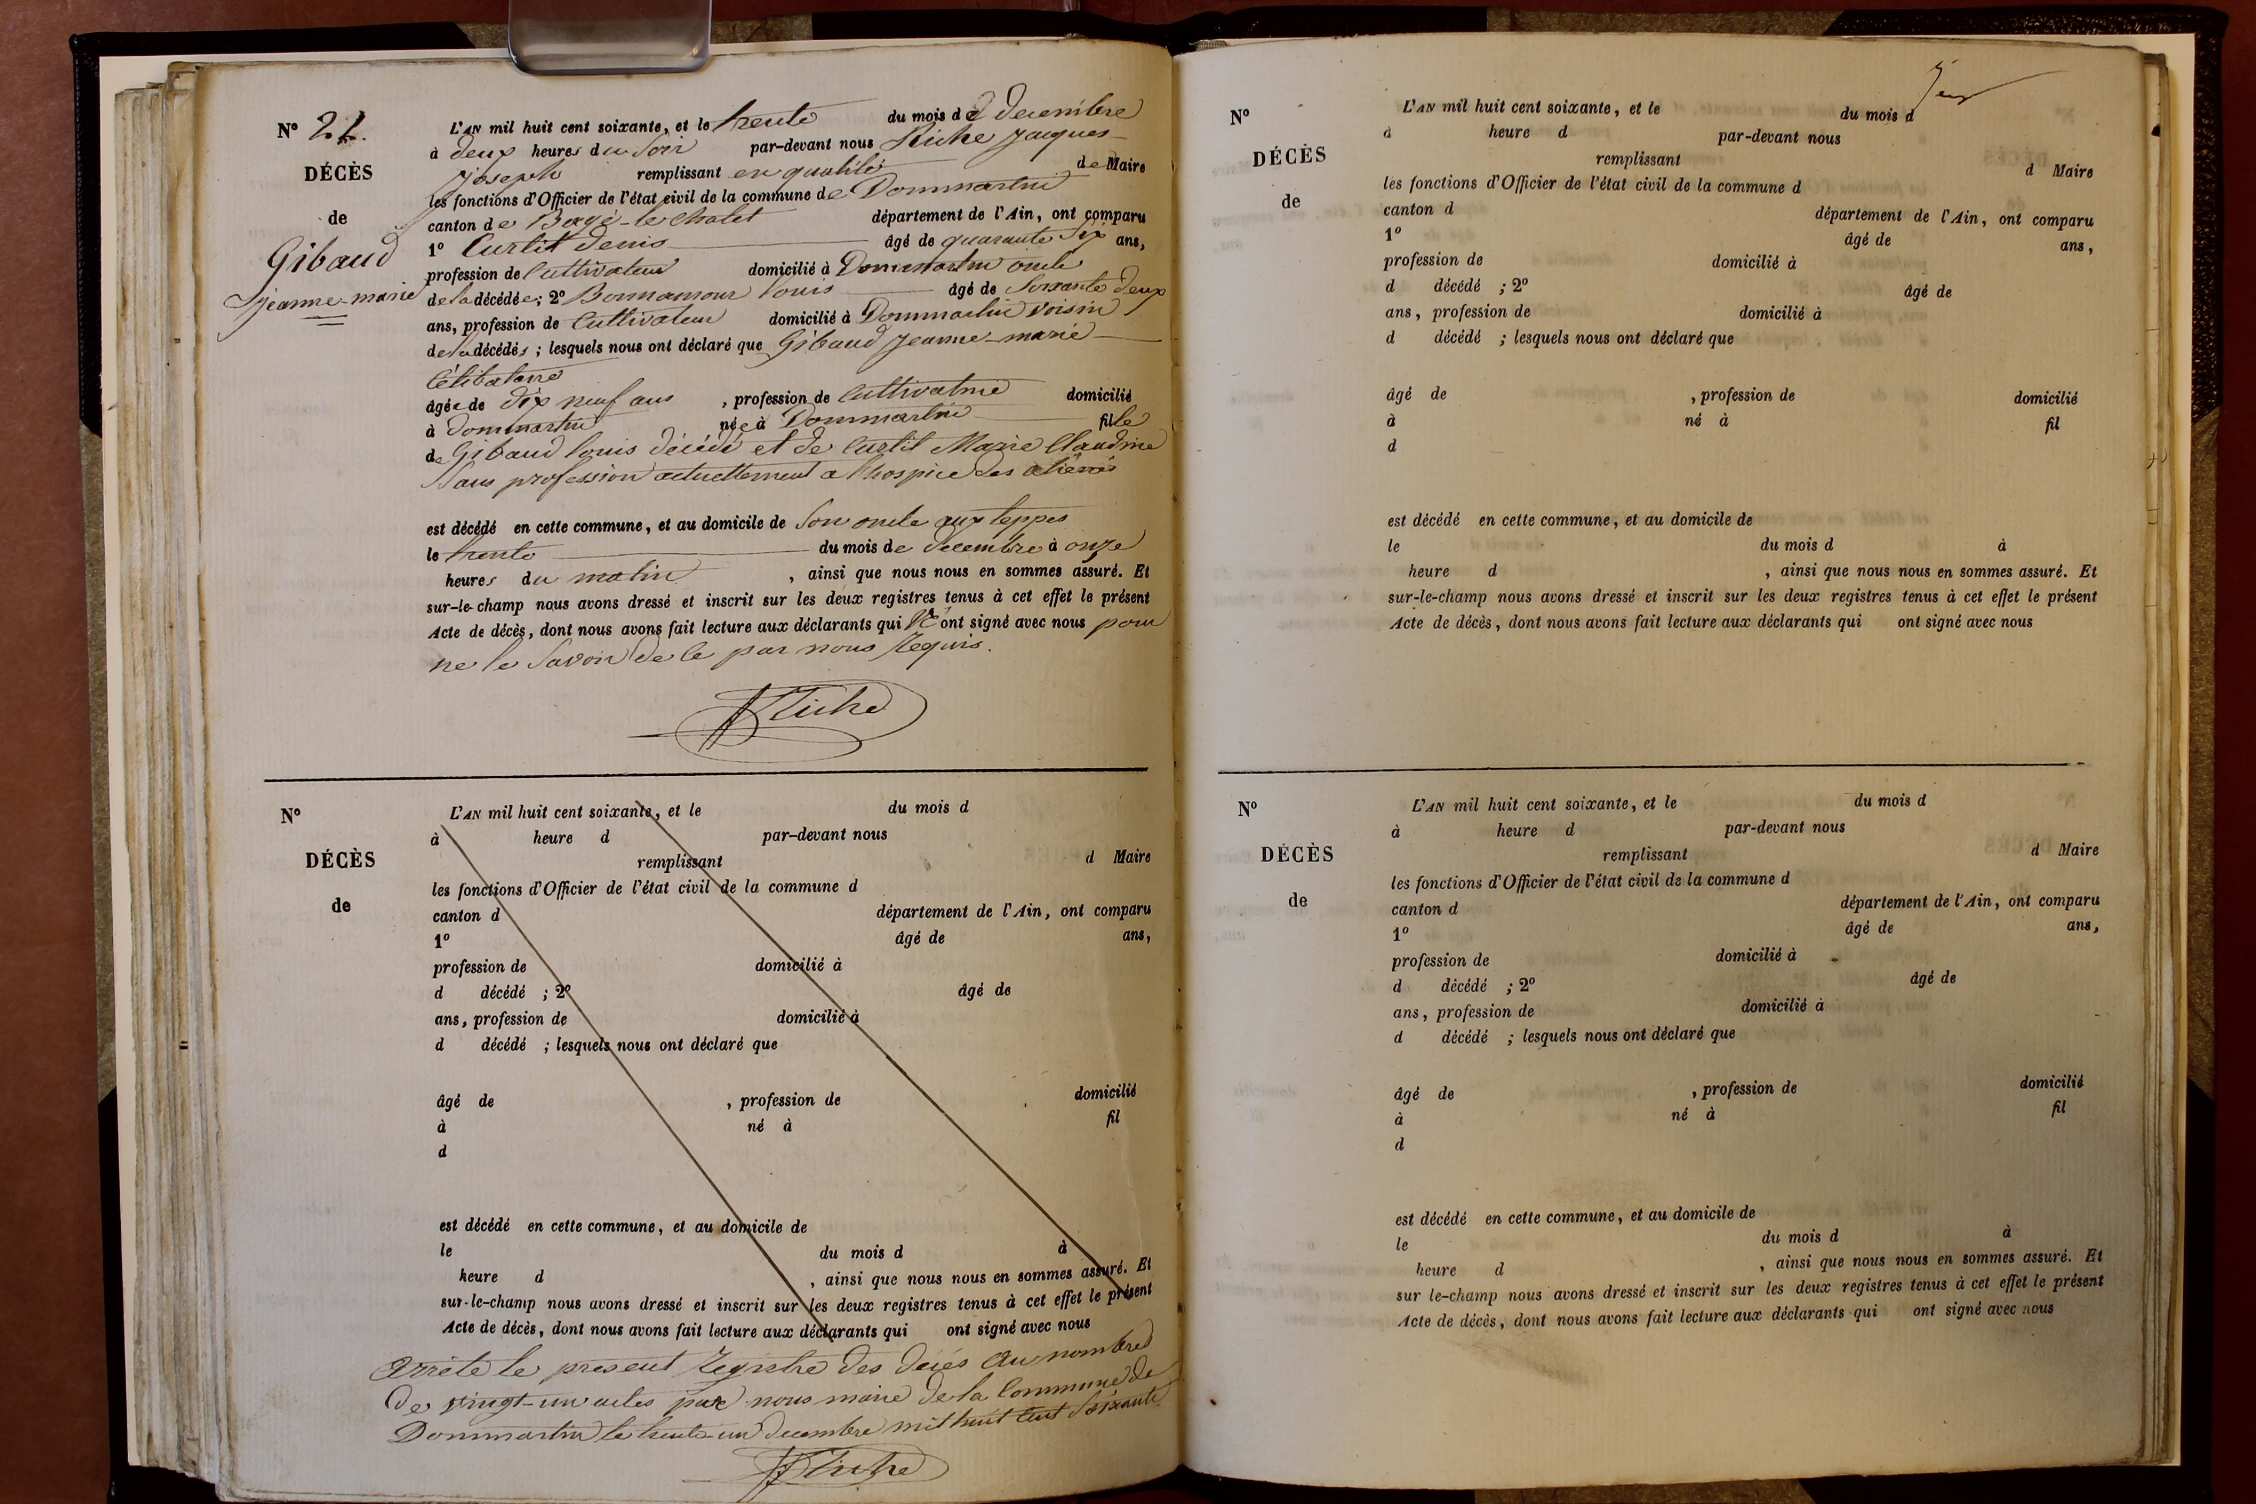 N° 21.
DÉCÈS
de
Gibaud
Jeanne-marie
L'AN mil huit cent soixante, et le trente du mois de decembre
à deux heures du soir par-devant nous Riche Jacques
Joseph remplissant en qualité de Maire
les fonctions d'Officier de l'état civil de la commune de Dommartin
canton de Bagé-le-Chatel département de l'Ain, ont comparu
1° Curtit Denis âgé de quarante six ans,
profession de Cultivateur domicilié à Dommartin oncle
de la décédée; 2° Bonnamour Louis âgé de Soixante deux
ans, profession de Cultivateur domicilié à Dommartin voisin
de la décédés; lesquels nous ont déclaré que Gibaud Jeanne-marie
Célibataire
âgée de dix neuf ans, profession de Cultivatrice domicilié
à dommartin née à Dommartin fille
de Gibaud Louis décédé et de Curtit Marie Claudine
Sans profession actuellement a l'hospice des aliénés
est décédé en cette commune, et au domicile de Son oncle aux teppes
le trente du mois de decembre à onze
heures du matin, ainsi que nous nous en sommes assuré. Et
sur-le-champ nous avons dressé et inscrit sur les deux registres tenus à cet effet le présent
Acte de décès, dont nous avons fait lecture aux déclarants qui ont signé avec nous pour
ne le Savoir de ce par nous Requis.
Riche
N°
DÉCÈS
de
L'AN mil huit cent soixante, et le du mois d
à heure d par-devant nous
remplissant d Maire
les fonctions d'Officier de l'état civil de la commune d
canton d département de l'Ain, ont comparu
1° âgé de ans,
profession de domicilié à
d décédé ; 2° âgé de
ans, profession de domicilié à
d décédé ; lesquels nous ont déclaré que
âgé de , profession de domicilié
à né à fil
d
est décédé en cette commune, et au domicile de
le du mois d à
heure d , ainsi que nous nous en sommes assuré. Et
sur-le-champ nous avons dressé et inscrit sur les deux registres tenus à cet effet le présent
Acte de décès, dont nous avons fait lecture aux déclarants qui ont signé avec nous
Arrêté le present Registre des décès au nombre
de vingt-un actes par nous maire de la Commune de
Dommartin le trente-un decembre mil huit cent Soixante
Riche
N°
DÉCÈS
de
L'AN mil huit cent soixante, et le du mois d
à heure d par-devant nous
remplissant d Maire
les fonctions d'Officier de l'état civil de la commune d
canton d département de l'Ain, ont comparu
1° âgé de ans,
profession de domicilié à
d décédé ; 2° âgé de
ans, profession de domicilié à
d décédé ; lesquels nous ont déclaré que
âgé de , profession de domicilié
à né à fil
d
est décédé en cette commune, et au domicile de
le du mois d à
heure d , ainsi que nous nous en sommes assuré. Et
sur-le-champ nous avons dressé et inscrit sur les deux registres tenus à cet effet le présent
Acte de décès, dont nous avons fait lecture aux déclarants qui ont signé avec nous
N°
DÉCÈS
de
L'AN mil huit cent soixante, et le du mois d
à heure d par-devant nous
remplissant d Maire
les fonctions d'Officier de l'état civil de la commune d
canton d département de l'Ain, ont comparu
1° âgé de ans,
profession de domicilié à
d décédé ; 2° âgé de
ans, profession de domicilié à
d décédé ; lesquels nous ont déclaré que
âgé de , profession de domicilié
à né à fil
d
est décédé en cette commune, et au domicile de
le du mois d à
heure d , ainsi que nous nous en sommes assuré. Et
sur le-champ nous avons dressé et inscrit sur les deux registres tenus à cet effet le présent
Acte de décès, dont nous avons fait lecture aux déclarants qui ont signé avec nous